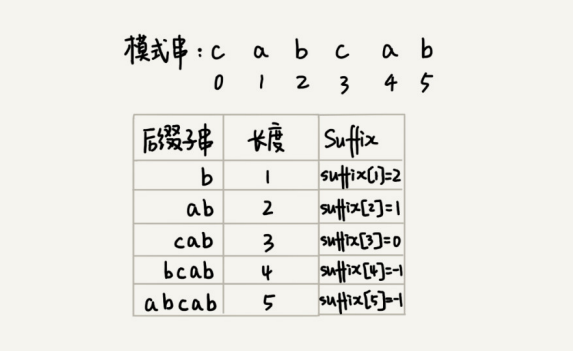 模式串：c a b c a b
0 1 2 3 4 5
后缀子串 长度 Suffix
b 1 suffix[1]=2
ab 2 suffix[2]=1
cab 3 suffix[3]=0
bcab 4 suffix[4]=-1
abcab 5 suffix[5]=-1